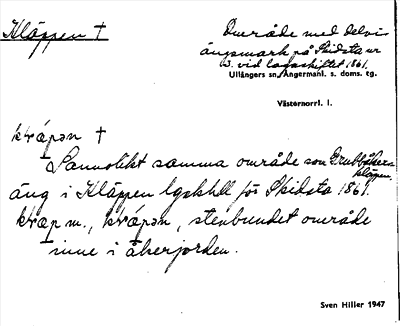 Kläppen †
Område med delvis
ängsmark på Skidsta nr
3. vid lagaskiftet 1861.
Ullångers sn, Ångermanl. s. doms. tg.
Västernorrl. l.
kläpən †
Sannolikt samma område som Grubbåkers-
kläppen,
äng i Kläppen lgskhll för Skidsta 1861.
klæp m., kläpən, stenbundet område
inne i åkerjorden.
Sven Hiller 1947